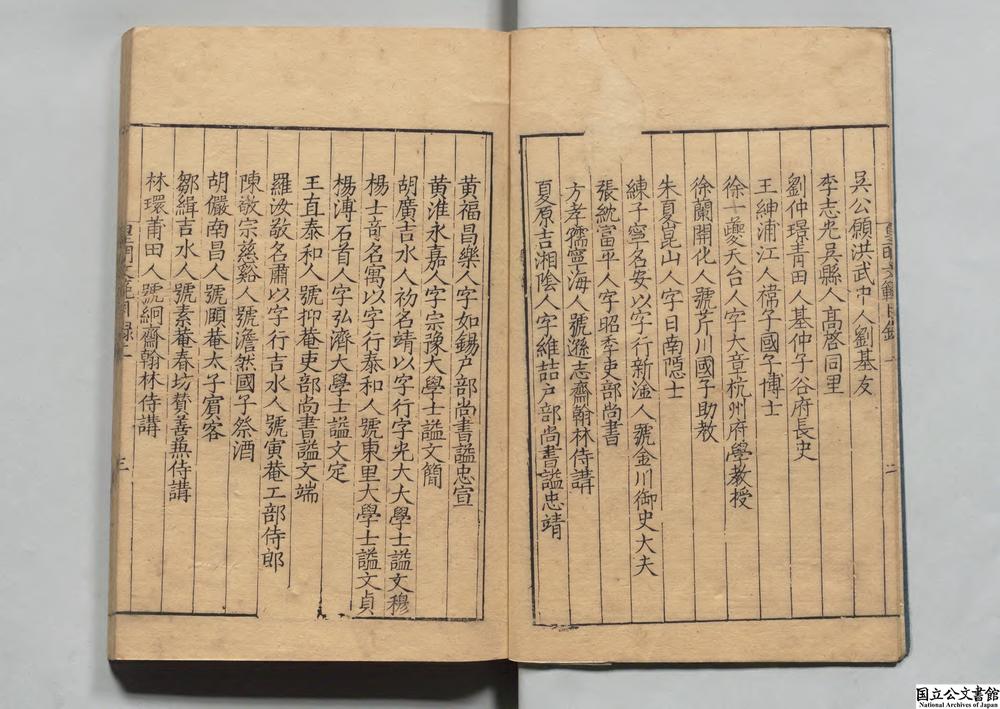 吳公願洪武中人劉基友
李志光吳縣人高啓同里
劉仲璟青田人基仲子谷府長史
王紳浦江人禕子國子博士
徐一夔天台人字大章杭州府學教授
徐蘭開化人號芹川國子助教
朱夏崑山人字日南隱士
練子寧名安以字行新淦人號金川御史大夫
張紞富平人字昭季吏部尚書
方孝孺寧海人號遜志齋翰林侍講
夏原吉湘陰人字維喆户部尚書謚忠靖
二
黄福昌樂人字如錫户部尚書謚忠宣
黄淮永嘉人字宗豫大學士謚文簡
胡廣吉水人初名靖以字行字光大大學士謚文穆
楊士竒名寓以字行泰和人號東里大學士謚文貞
楊溥石首人字弘濟大學士謚文定
王直泰和人號抑菴吏部尚書謚文端
羅汝敬名肅以字行吉水人號寅菴工部侍郎
陳敬宗慈谿人號澹然國子祭酒
胡儼南昌人號頤菴太子賓客
鄒緝吉水人號素菴春坊賛善兼侍講
林環莆田人號絅齋翰林侍講
三
国立公文書館
National Archives of Japan